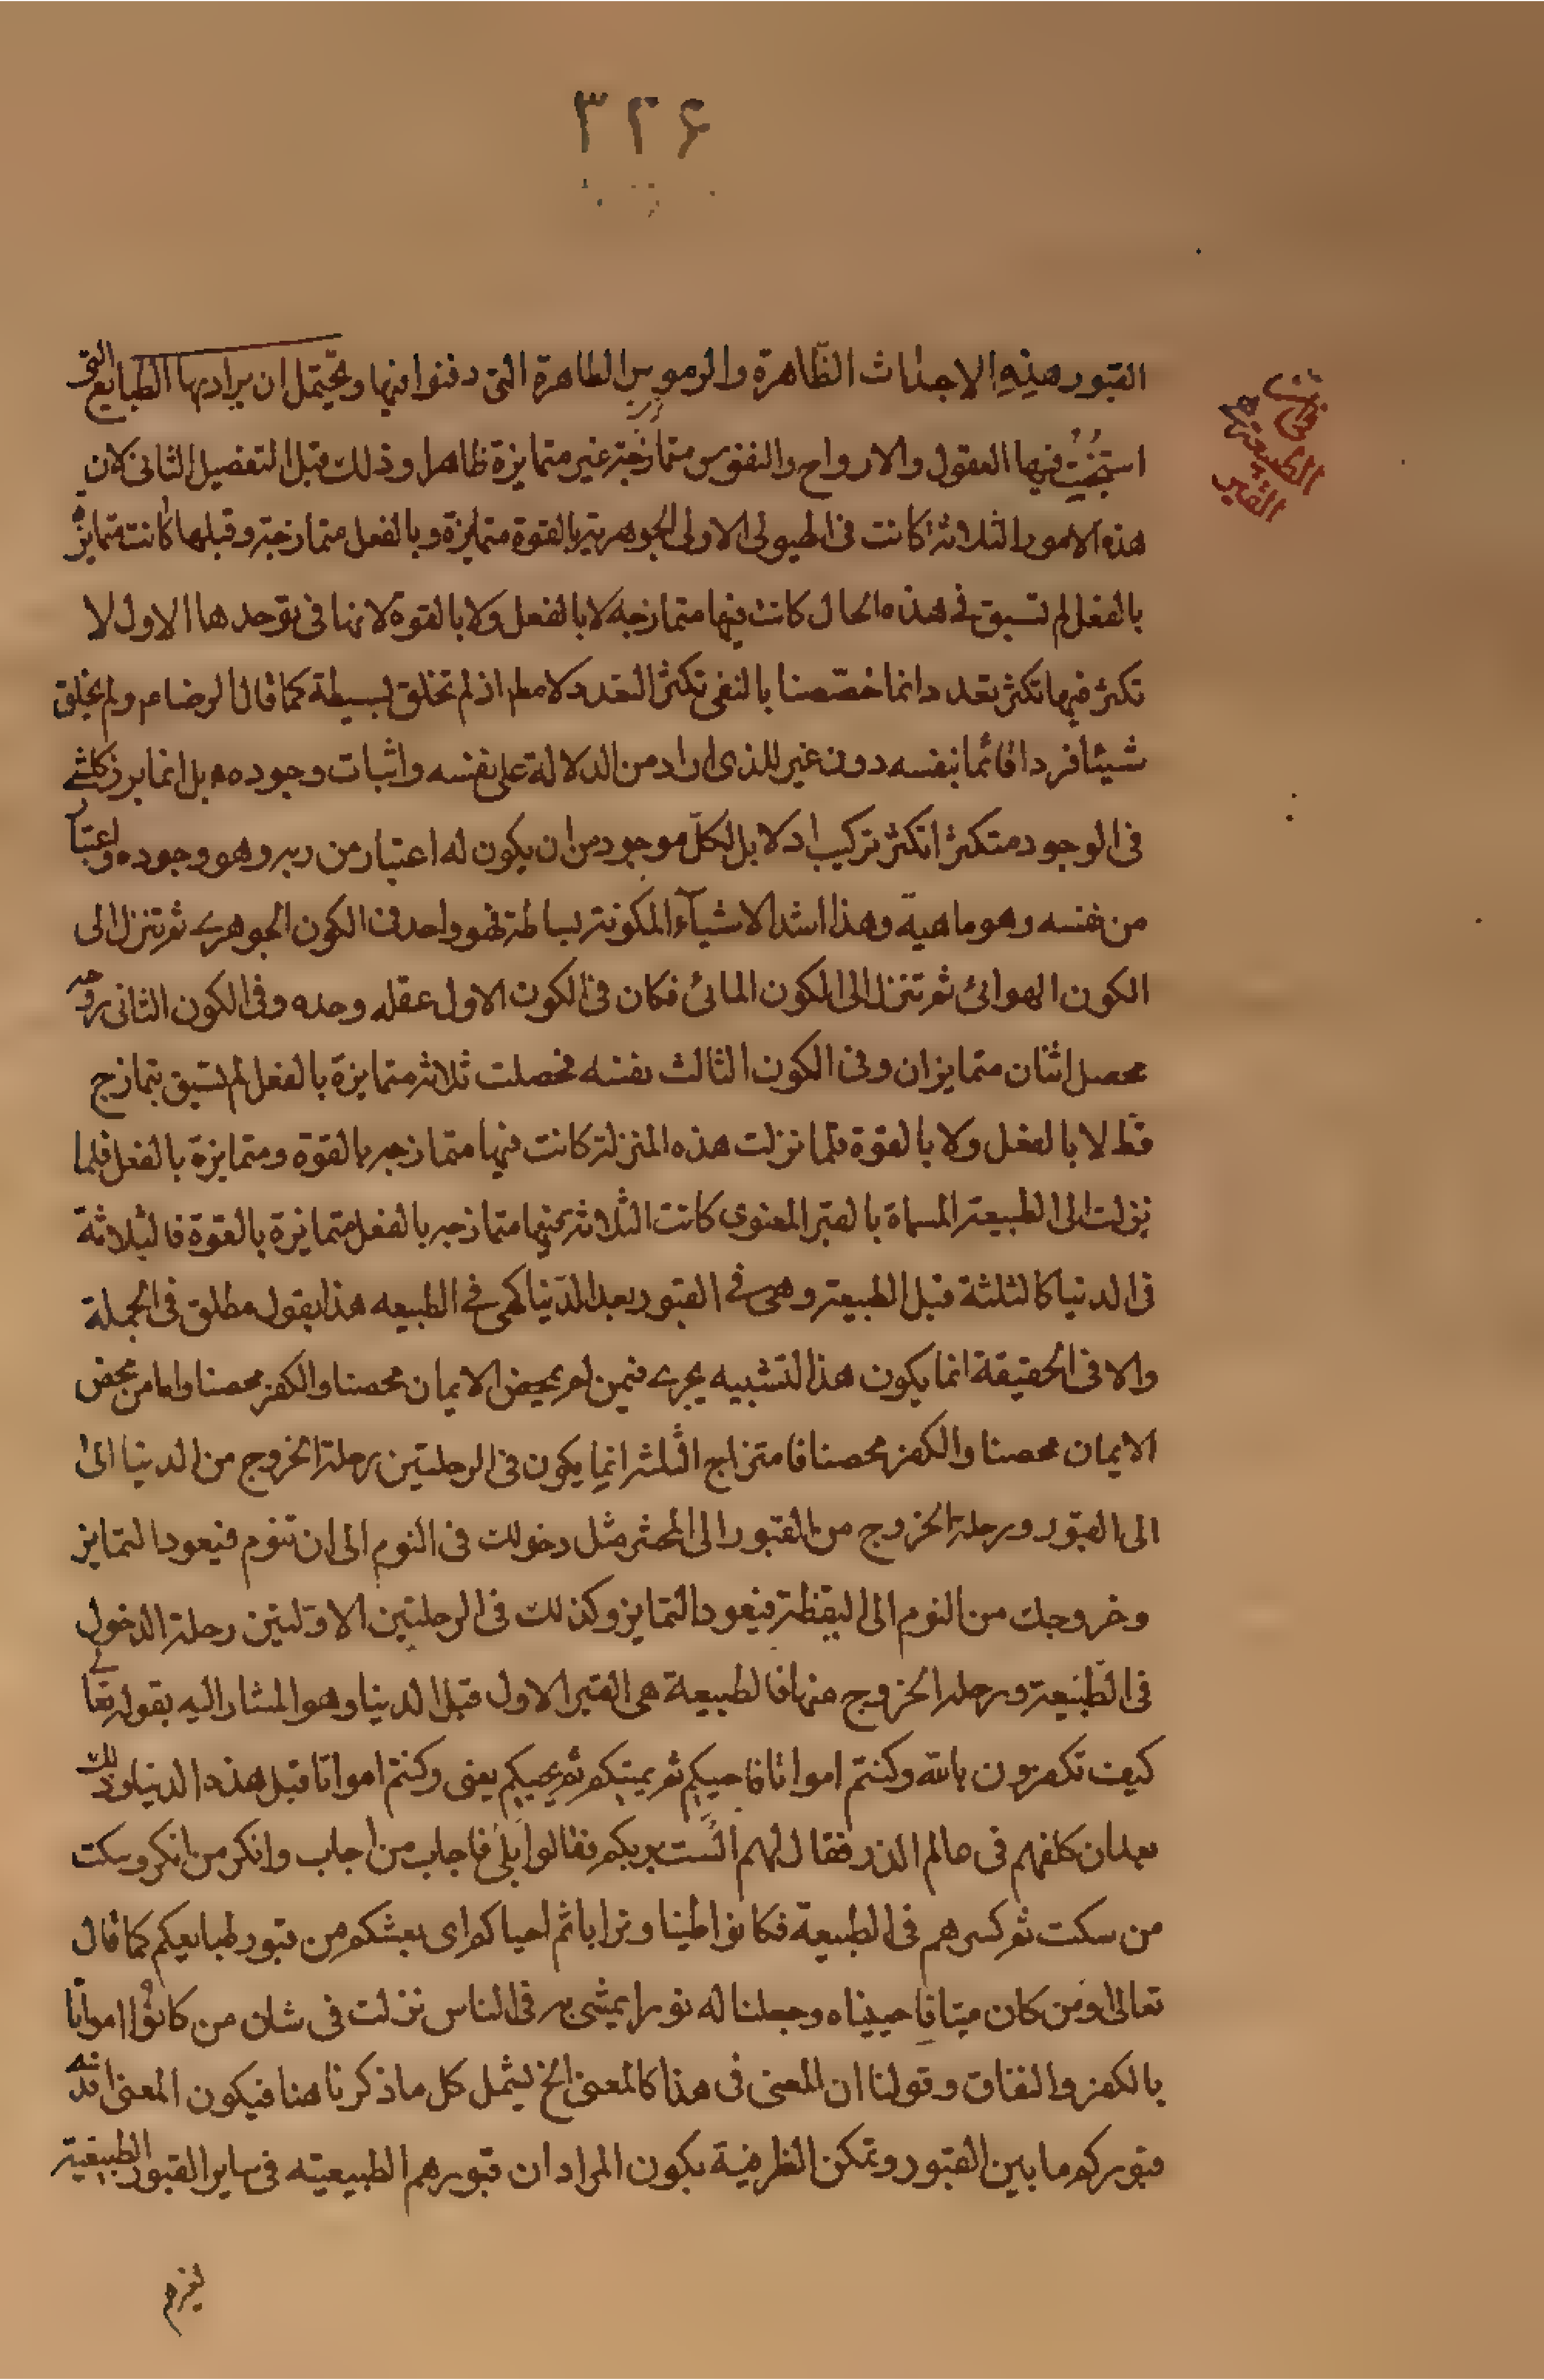 ۳۲۶
في ان
الطبيعة هي
القبر
القبور هذه الاجداث الظّاهرة والرموس الطاهرة التى دفنوا فيها ويحتمل ان يراد بها الطبايع التى
استجنت فيها العقول والارواح والنفوس متمازجة غير متمايزة ظاهرا وذلك قبل التفصيل الثانى لان
هذه الامور الثلاثة كانت فى الهيولى الاولى الجوهرية بالقوة متمايزة وبالفعل متمازجة وقبلها كانت متمايزة
بالفعل لم تسبق فى هذه الحال كانت فيها متمازجه لا بالفعل ولا بالقوة لانها فى توحدها الاول لا
تكثر فيها تكثر تعدد وانما خصّصنا بالنفى تكثر التعدد لا مط اذ لم تخلق بسيطة كما قال الرضا ع م ولم يخلق
شيئا فردا قائما بنفسه دون غير للذى اراد من الدلالة على نفسه واثبات وجوده بل انما برز كل شئ
فى الوجود متكثرا تكثر تركيب اذ لا بد لكلّ موجود من ان يكون له اعتبار من ربه وهو وجوده واعتبار
من نفسه وهو ماهية وهذا اشد الاشيآء المكونة بساطة فهو واحد فى الكون الجوهرى ثم تنزل الى
الكون الهوائى ثم تنزل الى الكون المائى فكان فى الكون الاول عقله وحده وفى الكون الثانى روحه
محصل اثنان متمايزان وفى الكون الثالث نفسه فحصلت ثلاثة متمايزة بالفعل لم تسبق بتمازج
قط لا بالفعل ولا بالقوة فلما نزلت هذه المنزلة كانت فيها متمازجه بالقوة ومتمايزة بالفعل فلما
نزلت الى الطبيعة المسماة بالقبر المعنوى كانت الثلاثة فيها متمازجه بالفعل متمايزة بالقوة فالثلاثة
فى الدنيا كالثلثة قبل الطبيعة وهى فى القبور بعد الدّنيا كهى فى الطبيعه هذا بقول مطلق فى الجملة
والا فى الحقيقة انما يكون هذا التشبيه يجرى فيمن لم يمحض الايمان محضا والكفر محضا واما من محض
الايمان محضا والكفر محضا فامتزاج الثلثة انما يكون فى الرحلتين رحلة الخروج من الدنيا الى
الى القبور ورحلة الخروج من القبور الى المحشر مثل دخولك فى النوم الى ان تنوم فيعود التمايز
وخروجك من النوم الى اليقظة فيعود التمايز وكذلك فى الرحلتين الاوّلتين رحلة الدخول
فى الطّبيعة ورحلة الخروج منها فالطبيعة هى القبر الاول قبل الدنيا وهو المشار اليه بقوله تعالى
كيف تكفرون بالله وكنتم امواتا فاحييكم ثم يميتكم ثم يحييكم يعنى وكنتم امواتا قبل هذه الدنيا وذلك
بعد ان كلفهم فى عالم الذر فقال لهم الست بربكم فقالوا بلى فاجاب من اجاب وانكر من انكر وسكت
من سكت ثم كسرهم فى الطبيعة فكانوا طينا وترابا ثم احياكم اى بعثكم من قبور طبايعكم كما قال
تعالى اومن كان ميتا فاحييناه وجعلنا له نورا يمشى به فى الناس نزلت فى شان من كانوا امواتا
بالكفر والنفاق وقولنا ان المعنى فى هذا كالمعنى الخ ليشمل كل ما ذكرنا هنا فيكون المعنى انه
قبوركم ما بين القبور وتمكن الظرفية بكون المراد ان قبورهم الطبيعيته فى ساير القبور الطبيعية